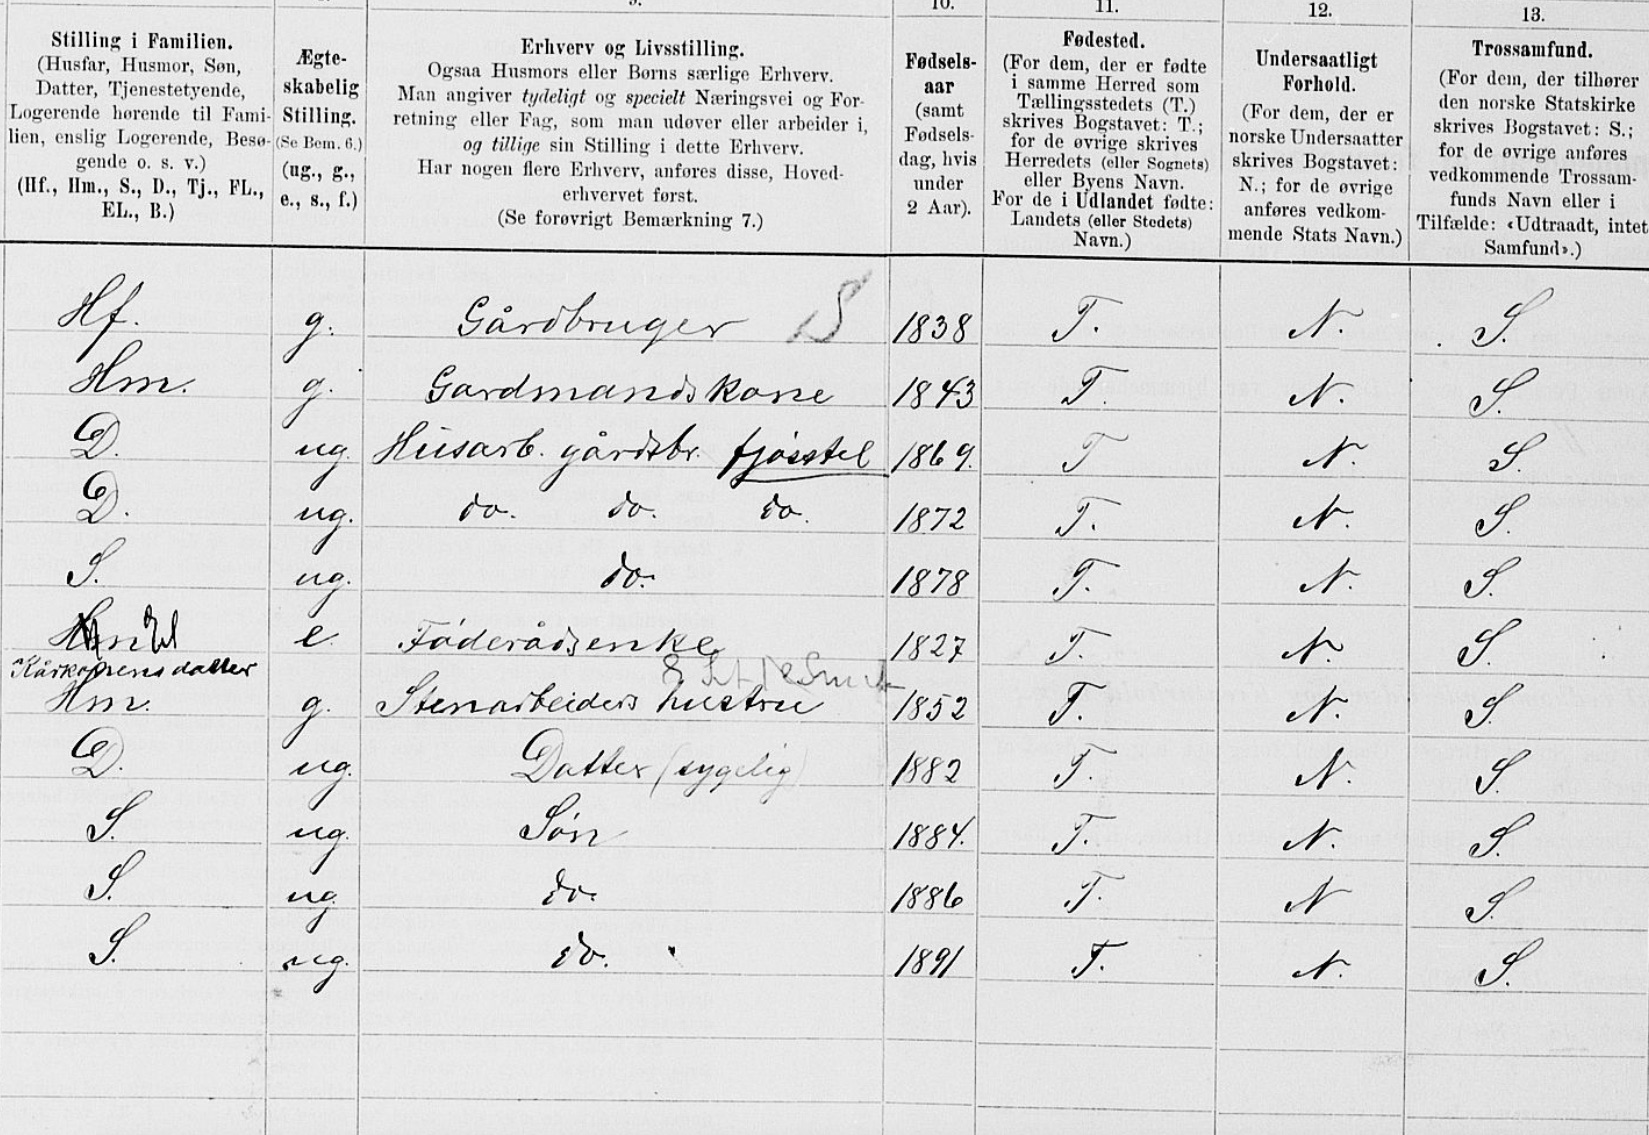 9.
10.
11.
12.
13.
Stilling i Familien.
(Husfar, Husmor, Søn,
Datter, Tjenestetyende,
Logerende hørende til Fami-
lien, enslig Logerende, Besø-
gende o. s. v.)
(Hf., Hm., S., D., Tj., FL.,
EL., B.)
Ægte-
skabelig
Stilling.
(Se Bem. 6.)
(ug., g.,
e., s., f.)
Erhverv og Livsstilling.
Ogsaa Husmors eller Børns særlige Erhverv.
Man angiver tydeligt og specielt Næringsvei og For-
retning eller Fag, som man udøver eller arbeider i,
og tillige sin Stilling i dette Erhverv.
Har nogen flere Erhverv, anføres disse, Hoved-
erhvervet først.
(Se forøvrigt Bemærkning 7.)
Fødsels-
aar
(samt
Fødsels-
dag, hvis
under
2 Aar).
Fødested.
(For dem, der er fødte
i samme Herred som
Tællingsstedets (T.)
skrives Bogstavet: T.;
for de øvrige skrives
Herredets (eller Sognets)
eller Byens Navn.
For de i Udlandet fødte:
Landets (eller Stedets)
Navn.)
Undersaatligt
Forhold.
(For dem, der er
norske Undersaatter
skrives Bogstavet:
N.; for de øvrige
anføres vedkom-
mende Stats Navn.)
Trossamfund.
(For dem, der tilhører
den norske Statskirke
skrives Bogstavet: S.;
for de øvrige anføres
vedkommende Trossam-
funds Navn eller i
Tilfælde: «Udtraadt, intet
Samfund».)
Hf. g. Gårdbruger S 1838 T. N. S.
Hm. g. Gardmandskone 1843 T. N. S.
D. ug. Husarb. gårdsbr. fjøsstel 1869. T N. S.
D. ug. do. do. do. 1872 T. N. S.
S. ug. do. 1878 T. N. S.
El e. Føderådsenke 1827 T. N. S.
Kårkonens datter
Hm. g. Stenarbeiders hustru 1852 T. N. S.
D. ug. Datter (sygelig) 1882 T. N. S.
S. ug. Søn 1884. T. N. S.
S. ug. do. 1886 T. N S.
S. ug. do. 1891 T. N. S.